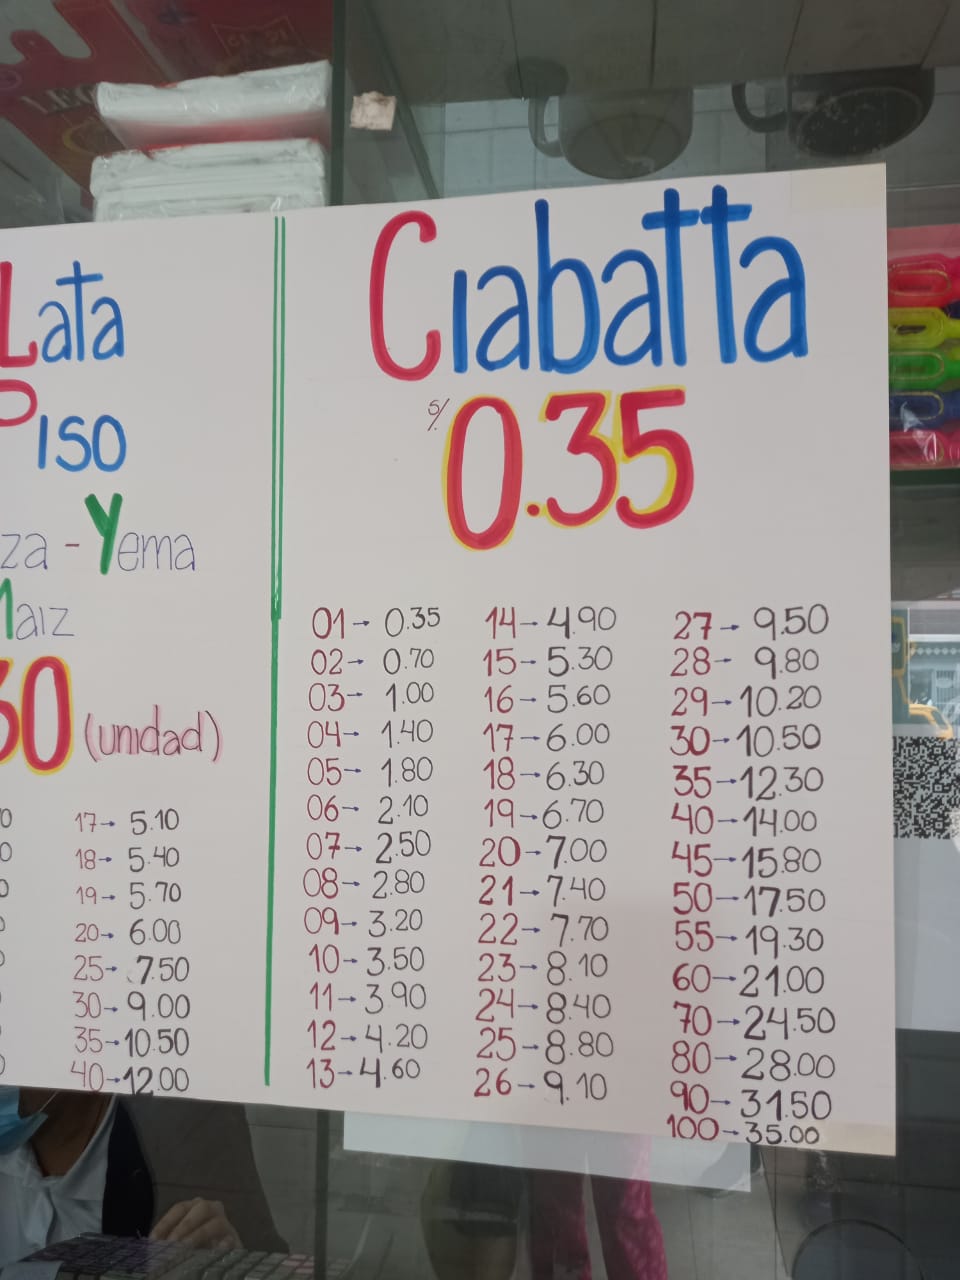 Lata
Piso
za - Yema
Maiz
30 (unidad)
17→ 5.10
18→ 5.40
19→ 5.70
20→ 6.00
25→ 7.50
30→ 9.00
35→ 10.50
40→ 12.00
Ciabatta
S/. 0.35
01→ 0.35
02→ 0.70
03→ 1.00
04→ 1.40
05→ 1.80
06→ 2.10
07→ 2.50
08→ 2.80
09→ 3.20
10→ 3.50
11→ 3.90
12→ 4.20
13→ 4.60
14→ 4.90
15→ 5.30
16→ 5.60
17→ 6.00
18→ 6.30
19→ 6.70
20→ 7.00
21→ 7.40
22→ 7.70
23→ 8.10
24→ 8.40
25→ 8.80
26→ 9.10
27→ 9.50
28→ 9.80
29→ 10.20
30→ 10.50
35→ 12.30
40→ 14.00
45→ 15.80
50→ 17.50
55→ 19.30
60→ 21.00
70→ 24.50
80→ 28.00
90→ 31.50
100→ 35.00